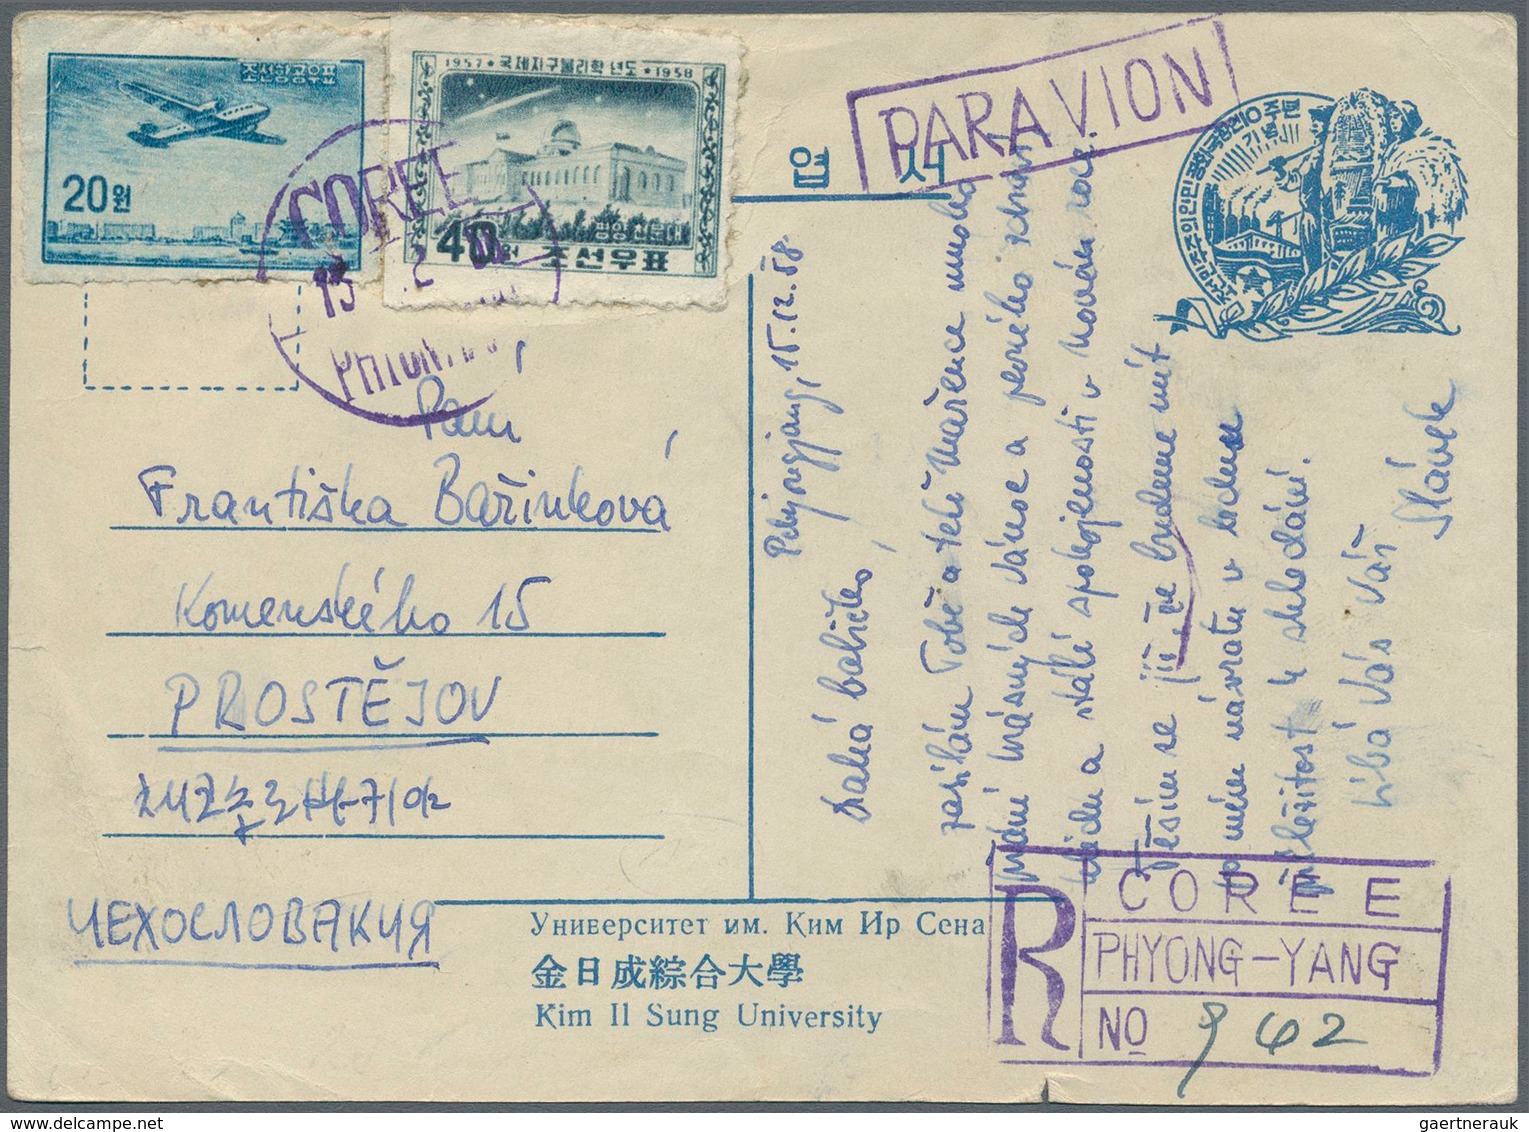 조선항공우표
20원
1957 * 국제지구물리학 년도 * 1958
40원 조선우표
COREE
PAR AVION
엽서
조선민주주의인민공화국창건10주년
기념
Paní
Františka Bařinková
Komenského 15
PROSTĚJOV
ЧЕХОСЛОВАКИЯ
Phjongjang, 15.12.58
Drahá babičko,
zasílám Tobě a teté Mařence mnoho
přání krásných vánoc a pevného zdraví
klidu a stálé spokojenosti v Novém roce.
Těším se již, že budeme mít
po mém návratu
příležitost k shledání.
Líbá Vás Váš
Slávek
Университет им. Ким Ир Сена
金日成綜合大學
Kim Il Sung University
R
COREE
PHYONG-YANG
No 942
gaertnerauk